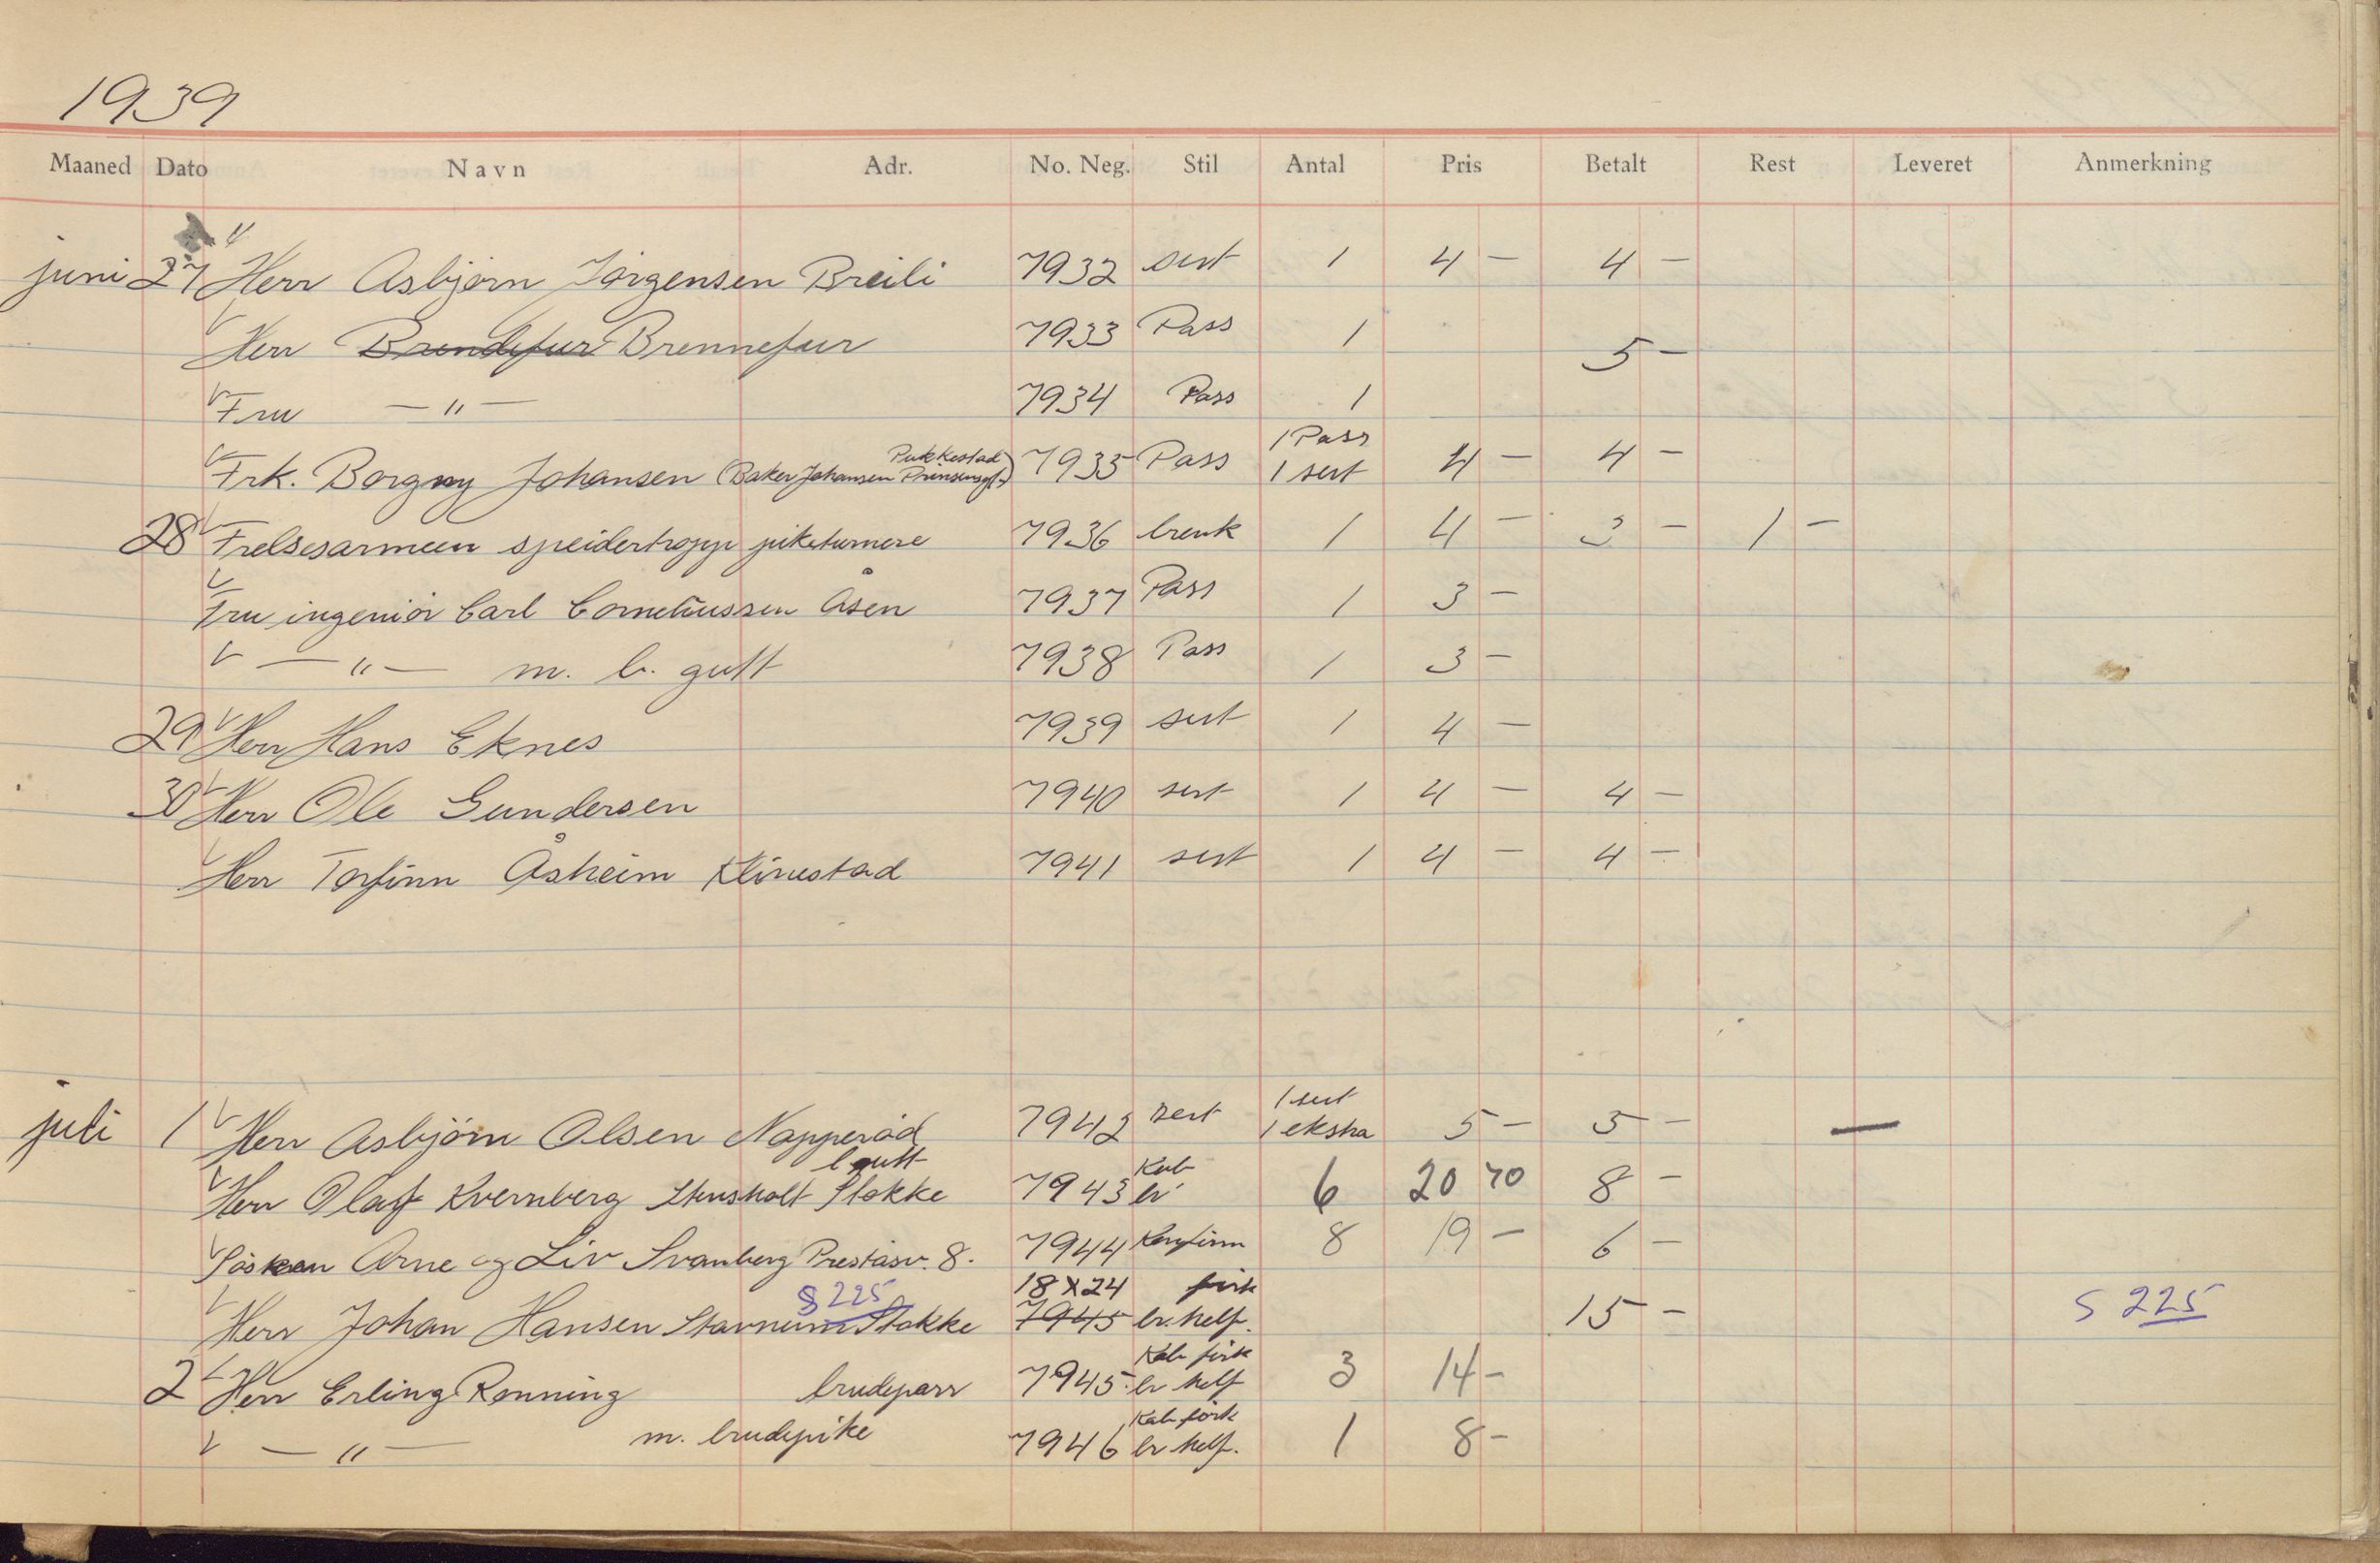 1939
Maaned Dato Navn Adr. No. Neg. Stil Antal Pris Betalt Rest Leveret Anmerkning
juni 27 Herr Asbjørn Jørgensen Breili 7932 sert 1 4 — 4 —
Herr Brendefur Brennefur 7933 Pass 1 5 —
Fru — " — 7934 Pass 1
Pukkestad 1 Pass
Frk. Borgny Johansen (Baker Johansen Prinsensgt.) 7935 Pass 1 sert 4 — 4 —
28 Frelsesarmeen speidertropp piketurnere 7936 brevk 1 4 — 3 — 1 —
Fru ingeniör Carl Corneliussen Åsen 7937 Pass 1 3 —
— " — m. l. gutt 7938 Pass 1 3 —
29 Herr Hans Eknes 7939 sert 1 4 —
30 Herr Ole Gundersen 7940 sert 1 4 — 4 —
Herr Torfinn Åsheim Klinestad 7941 sert 1 4 — 4 —
1 sert
juli 1 Herr Asbjörn Olsen Napperød 7942 sert 1 ekstra 5 — 5 — —
l gutt Kab
Herr Olaf Kvernberg Stensholt Stokke 7943 br 6 20 70 8 —
Søsken Arne og Liv Svanberg Preståsv. 8. 7944 Konfirm 8 19 — 6 —
S 225 18 X 24 firk
Herr Johan Hansen Stavnum Stokke 7945 br. helf. 15 — S 225
Kab firk
2 Herr Erling Rønning brudepar 7945 br helf 3 14 —
Kab firk
— " — m. brudepike 7946 br helf. 1 8 —